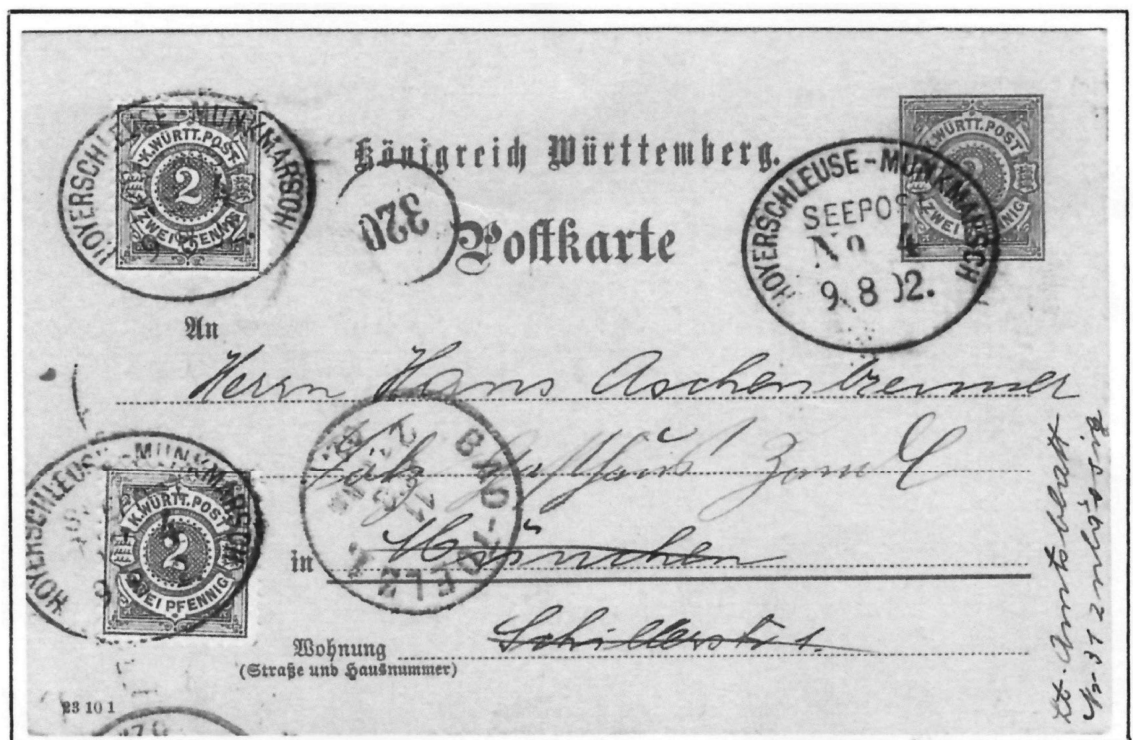 HOYERSCHLEUSE-MUNKMARSCH
K.WÜRTT.POST
2
ZWEI PFENNIG
Königreich Württemberg.
320
Postkarte
K.WÜRTT.POST
2
ZWEI PFENNIG
HOYERSCHLEUSE-MUNKMARSCH
SEEPOST
No 4
9.8 02.
An
Herrn Hans Aschenbrenner
Gasthaus Zum
HOYERSCHLEUSE-MUNKMARSCH
K.WÜRTT.POST
2
ZWEI PFENNIG
BAD-TOELZ 1
in München
Wohnung Schillerstr 1.
(Straße und Hausnummer)
23 10 1
Amtsblatt